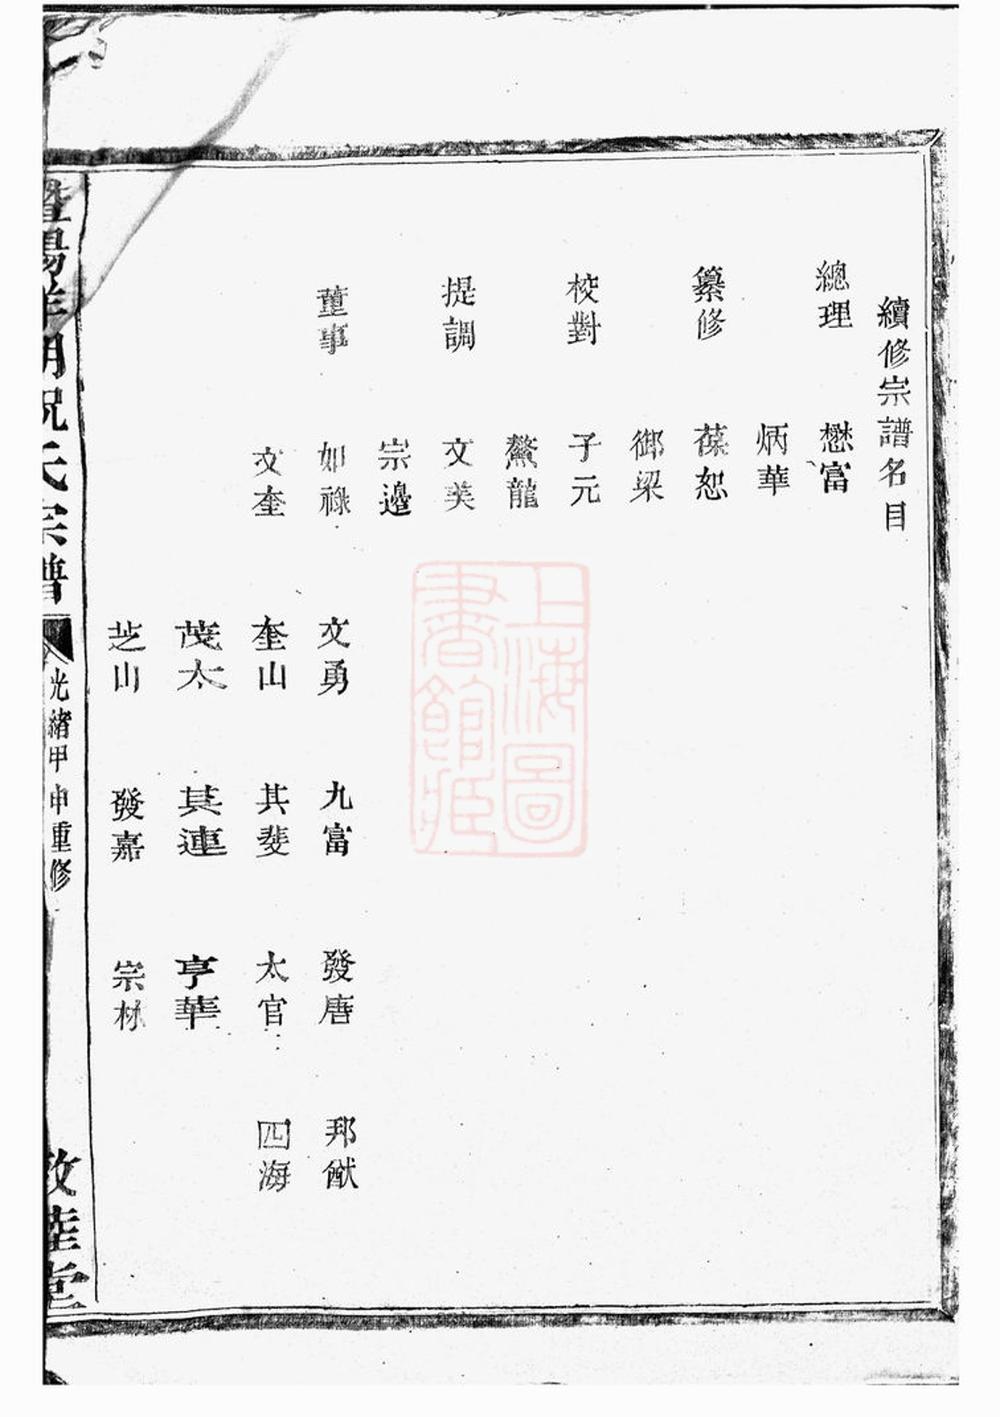 續修宗譜名目
總理 懋富
炳華
纂修 葆恕
御梁
校對 子元
鰲龍
提調 文美
宗邊
董事 如祿 文勇 九富 發唐 邦猷
文奎 奎山 其斐 太官 四海
茂太 其連 亨華
芝山 發嘉 宗林
暨陽 湖祝氏宗譜 光緒甲申重修 敦睦堂
上海圖
書館藏